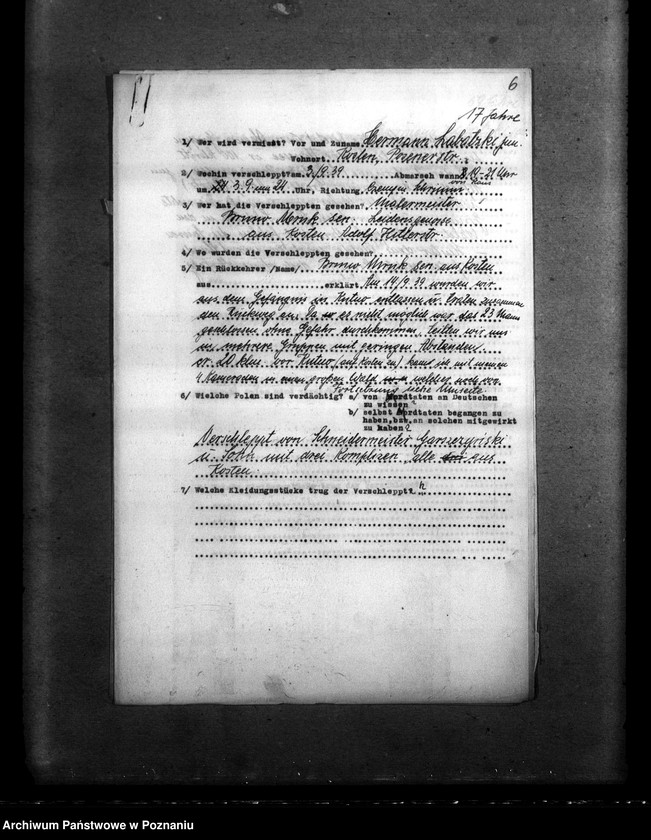 6
17 Jahre
1/ Wer wird vermisst? Vor und Zuname Hermann jun.
Wohnort. Kosten, Posenerstr.
2/ Wohin verschleppt? am. 3/9.39 Abmarsch wann
um. 3.9. um 21. Uhr, Richtung.
3/ Wer hat die Verschleppten gesehen?. Malermeister
Bruno sen. Leidensgenosse
aus Kosten Adolf Hitlerstr.
4/ Wo wurden die Verschleppten gesehen?
5/ Ein Rückkehrer /Name/ Bruno sen. aus Kosten
aus erklärt. Am 14/9.39 wurden wir
aus dem Gefängnis in Kutno entlassen u. traten zusammen
den Rückweg an. Da es nicht möglich war das 23 Mann
geschlossen ohne Gefahr durchkommen, teilten wir uns
in mehrere Gruppen mit geringen Abständen.
20 klm. vor Kutno kam ich mit meinen
4 Kameraden in großen Wald welcher noch von
Fortsetzung siehe Umseite
6/ Wielche Polen sind verdächtig? a/ von Mordtaten an Deutschen
zu wissen?
b/ selbst Mordtaten begangen zu
haben, bzw. an solchen mitgewirkt
zu haben?
Verschleppt von Schneidermeister
u. mit drei Komplizen alle aus
Kosten.
7/ Welche Kleidungsstücke trug der Verschleppt?
Archiwum Państwowe w Poznaniu